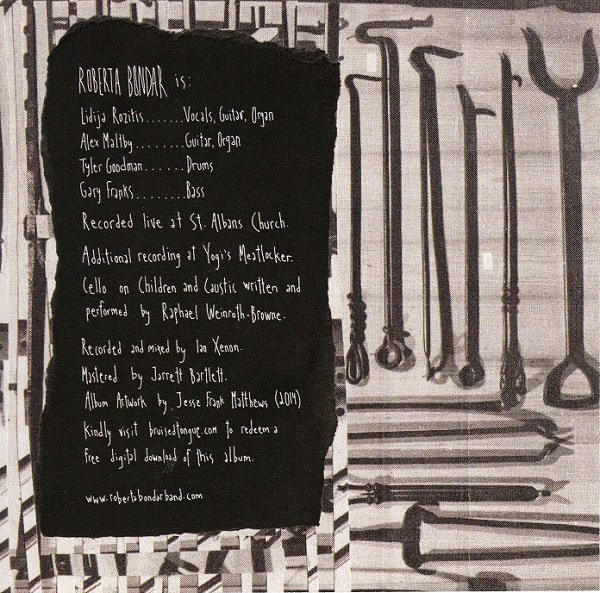 ROBERTA BONDAR is:
Lidija Rozitis.......Vocals, Guitar, Organ
Alex Maltby........Guitar, Organ
Tyler Goodman......Drums
Gary Franks........Bass
Recorded live at St. Albans Church.
Additional recording at Yogi's Meatlocker.
Cello on Children and Caustic written and
performed by Raphael Weinroth-Browne.
Recorded and mixed by Ian Xenon.
Mastered by Jarrett Bartlett.
Album Artwork by Jesse Frank Matthews (2014)
Kindly visit bruisedtongue.com to redeem a
free digital download of this album.
www.robertabondarband.com